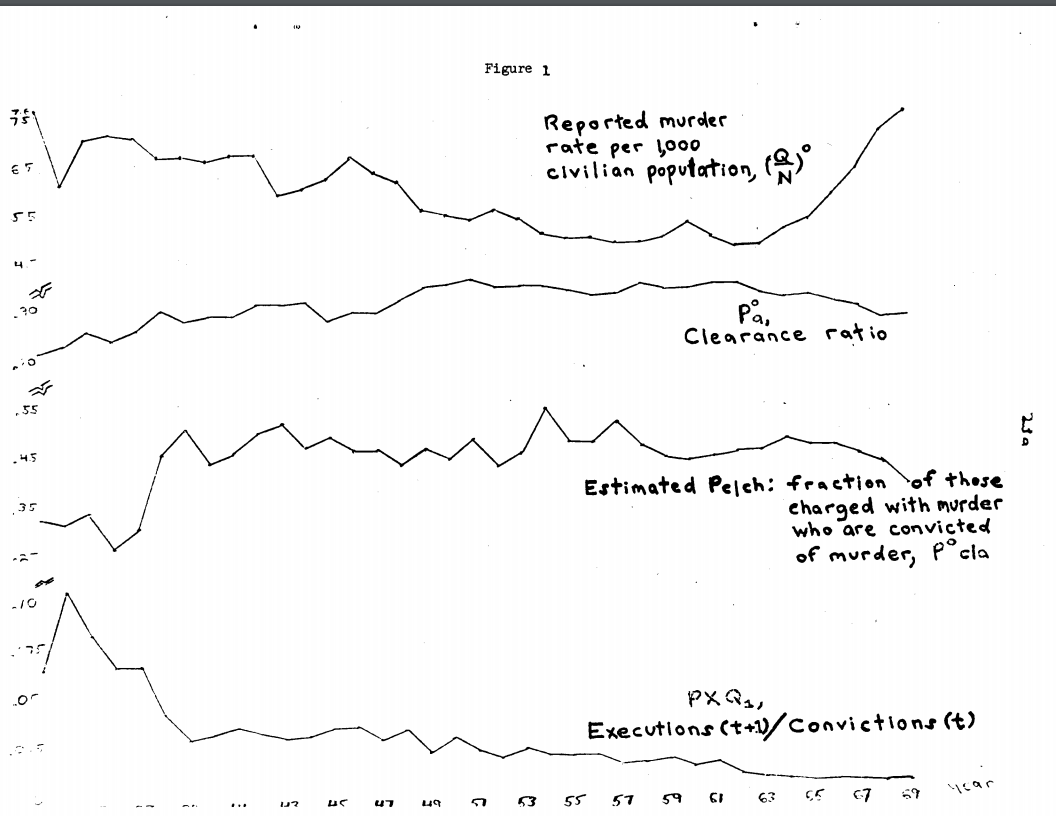 Figure 1
Reported murder
rate per 1,000
civilian population, (Q/N)°
75
65
55
P°a,
Clearance ratio
.30
.55
.45
.35
Estimated Pe/ch: fraction of those
charged with murder
who are convicted
of murder, P°cla
.10
PXQ₁,
Executions (t+1)/Convictions (t)
43 45 47 49 51 53 55 57 59 61 63 65 67 69 year